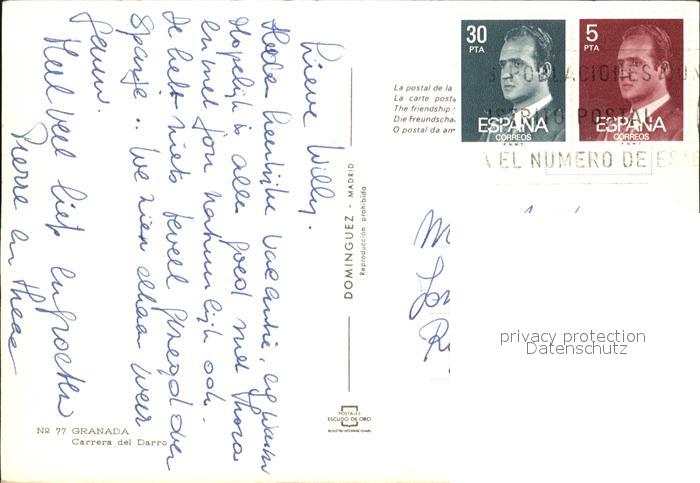 Lieve Willy.
Heden heerlijke vacantie,
Hopelijk is alles goed met Thora
en met jou natuurlijk ook.
Je hebt niets teveel gezegd over
Spanje .. We zien elkaar weer
gauw.
Heel veel liefs en groeten
Pierre en Theas
Nº 77 GRANADA
Carrera del Darro
DOMINGUEZ - MADRID
Reproducción prohibida
POSTALES
ESCUDO DE ORO
La postal de la
La carte poste
The friendship
Die Freundscha
O postal da am
30
PTA
ESPAÑA
CORREOS
F.N.M.T.
5
PTA
ESPAÑA
CORREOS
F.N.M.T.
POBLACIONES
DISTRITO POSTAL
EL NUMERO DE
privacy protection
Datenschutz